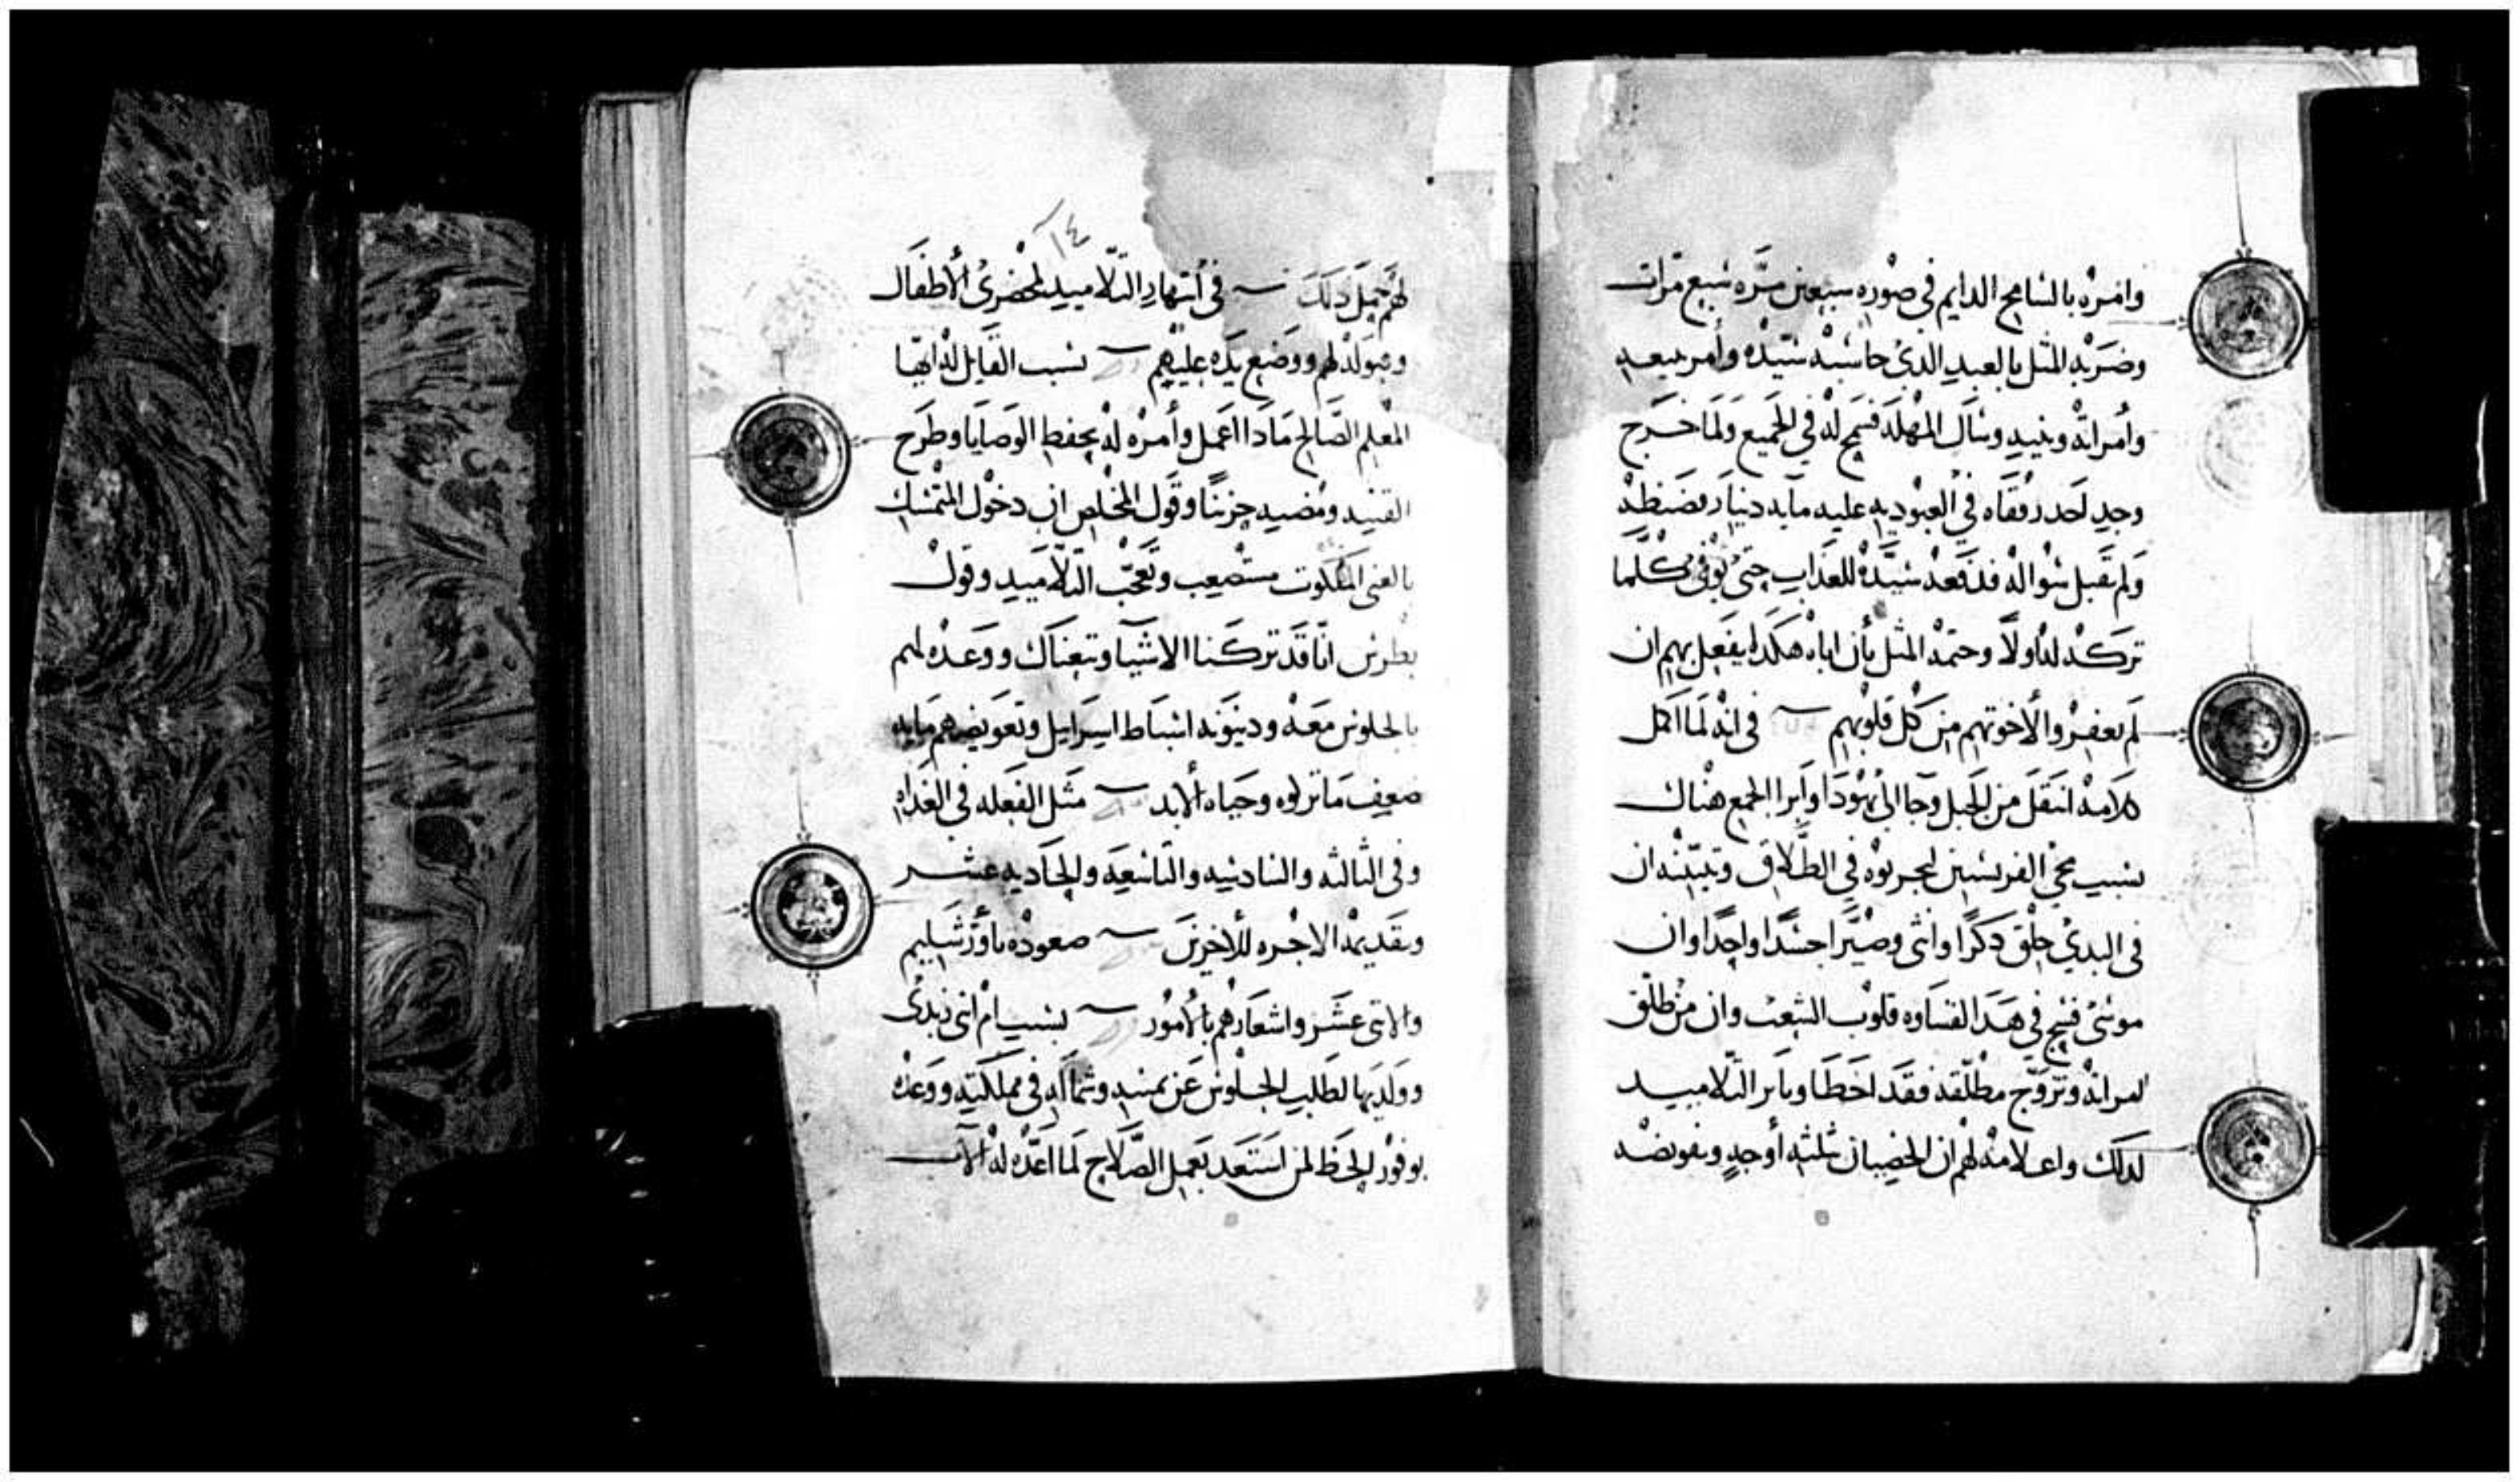 وامره بالتسامح الدايم في صوره سبعين مره سبع مرات
وضربه المثل بالعبد الذي حاسبه سيده وأمر ببيعه
وأمراته وبنيه وسال المهله فسمح له في الجميع ولما خرج
وجد احد رفقاه في العبوديه عليه مايه دينار فضنظه
ولم يقبل سواله فدفعه سيده للعذاب حتى يوفى كلما
تركه له اولا وحتمه المثل بأن اباه هكدا يفعل بهم ان
لم يغفروا لاخوتهم من كل قلوبهم في انه لما اكمل
كلامه انتقل من الجليل وجا الى يهودا وابرا الجمع هناك
بسبب مجي الفريسيين ليجربوه في الطلاق وتبيينه ان
في البدي خلق دكرا وانثى وصيرا جسدا واحدا وان
موسى فسح في هدا لقساوه قلوب الشعب وان من طلق
امراته وتزوج مطلقه فقد اخطا وتاثر التلاميد
لدلك واعلامه لهم ان الخصيان ثلثه أوجه وتفويضه
١٤
لهم حمل دلك في أنتهار التلاميد لمحضري الأطفال
وقبوله لهم ووضع يده عليهم بسبب القايل له ايها
المعلم الصالح مادا اعمل وأمره له بحفظ الوصايا وطرح
القنيه ومضيه حزينا وقول المخلص ان دخول المتمسك
بالغنى الملكوت مستصعب وتعجب التلاميد وقول
بطرس انا قد تركنا الاشيا وتبعناك ووعده لهم
بالجلوس معه ودينونه اسباط اسرايل وتعويضهم مايه
ضعف ما تركوه وحياه الابد مثل الفعله في الغداه
وفى الثالثه والسادسه والتاسعه والحاديه عشر
وتقديمه الاجره للأخرين صعوده ياورشليم
والاثنى عشر واشعارهم بالأمور بسبب ام ابنى زبدى
وولديها لطلب الجلوس عن يمينه وشماله في مملكته ووعده
بوفور الحظ لمن استعد بعمل الصلاح لما اعده له الاب